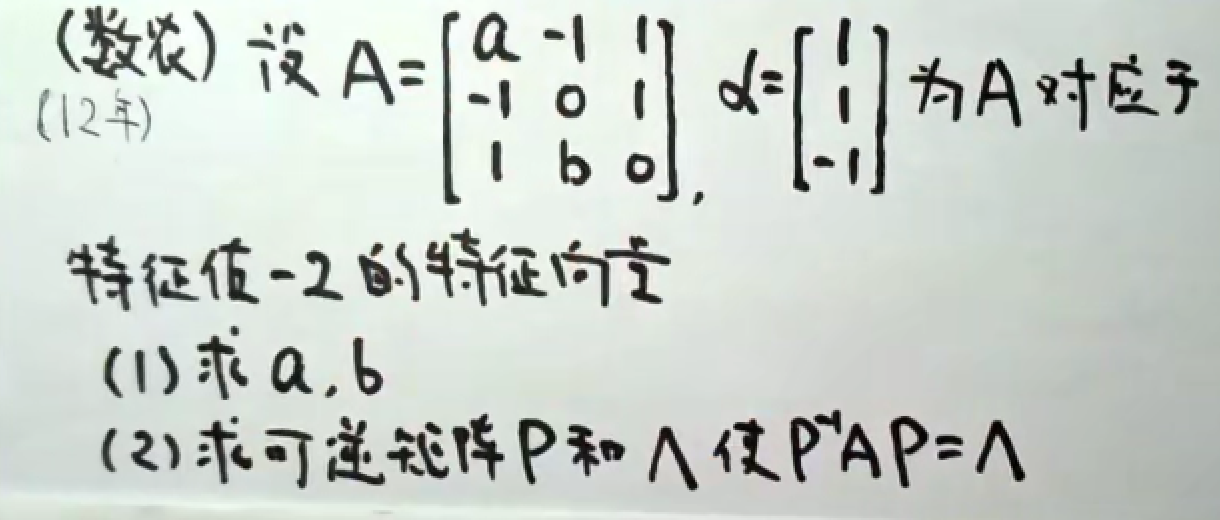 (数农) 设 A=[a -1 1; -1 0 1; 1 b 0], α=[1; 1; -1] 为A对应于
(12年)
特征值-2的特征向量
(1) 求 a, b
(2) 求可逆矩阵P和Λ使P⁻¹AP=Λ